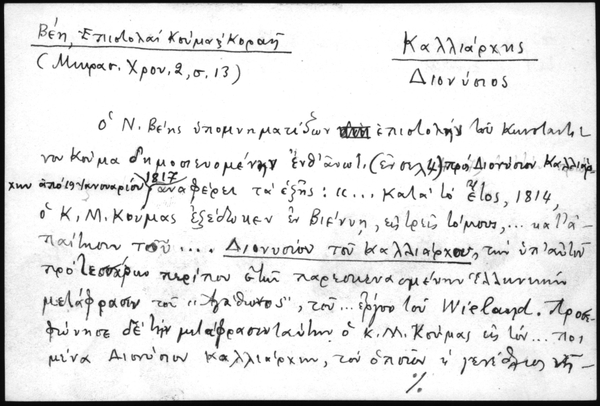 Βέη, Ἐπιστολαὶ Κούμα, Κοραῆ
(Μικρασ. Χρον. 2, σ. 13)
Καλλιάρχης
Διονύσιος
Ὁ Ν. Βέης ὑπομνηματίζων ἐπιστολὴν τοῦ Κωνσταντί
νου Κούμα δημοσιευομένην ἔνθ' ἀνωτ. (ἐν σελ. 4) πρὸς Διονύσιον Καλλιάρ
χην ἀπὸ 19 Ἰανουαρίου 1817 ἀναφέρει τὰ ἑξῆς: «... Κατὰ τὸ ἔτος, 1814,
ὁ Κ. Μ. Κούμας ἐξέδωκεν ἐν Βιέννῃ, εἰς τρεῖς τόμους, ... κατ' ἀ-
παίτησιν τοῦ ... Διονυσίου τοῦ Καλλιάρχου, τὴν ὑπ' αὐτοῦ
πρὸ τεσσάρων περίπου ἐτῶν παρεσκευασμένην Ἑλληνικὴν
μετάφρασιν τοῦ "Ἀγάθωνος", τοῦ ... ἔργου τοῦ Wieland. Προσε-
φώνησε δὲ τὴν μετάφρασιν ταύτην ὁ Κ. Μ. Κούμας εἰς τὸν ... ποι
μένα Διονύσιον Καλλιάρχην, τοῦ ὁποίου ἡ γενέθλιος
./.